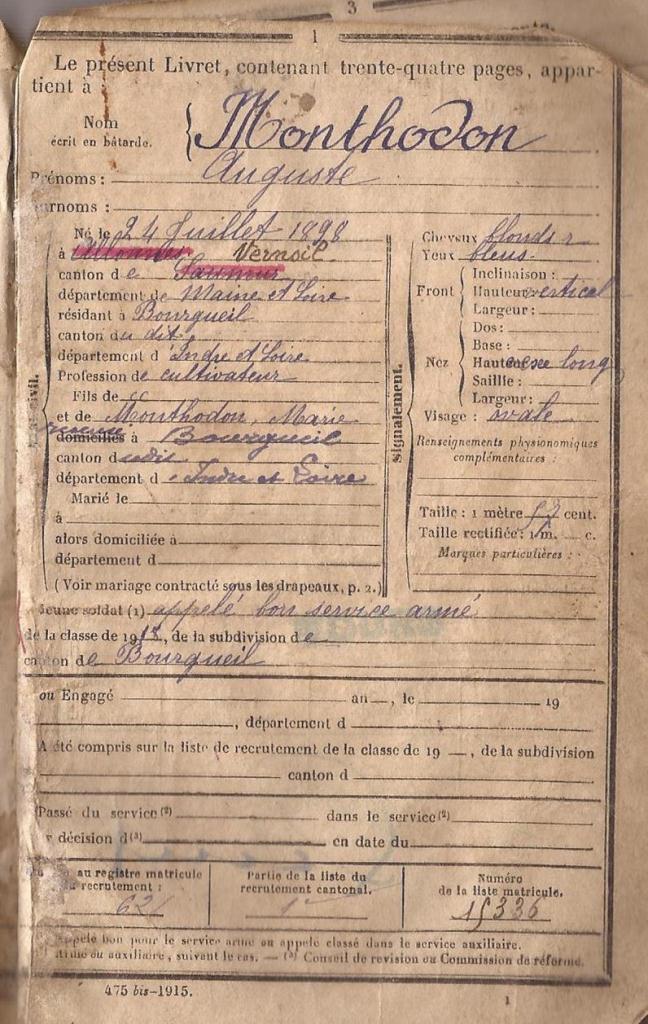 3
1
Le présent Livret, contenant trente-quatre pages, appar-
tient à :
Nom
écrit en bâtarde.
Monthodon
Prénoms : Auguste
urnoms :
Né le 24 Juillet 1898
à Allonnes Vernoil
canton de Saumur
département de Maine et Loire
résidant à Bourgueil
canton du dit
département d'Indre et Loire
Profession de cultivateur
Fils de
et de Monthodon, Marie
domiciliés à Bourgueil
canton dudit
département d'Indre et Loire
Marié le
à
alors domiciliée à
département d
(Voir mariage contracté sous les drapeaux, p. 2.)
civil.
Signalement.
Cheveux blonds
Yeux bleus
Front
Inclinaison :
Hauteur vertical
Largeur :
Nez
Dos :
Base :
Hauteur long
Saillie :
Largeur :
Visage : ovale
Renseignements physionomiques
complémentaires :
Taille : 1 mètre 57 cent.
Taille rectifiée : 1 m. c.
Marques particulières :
Jeune soldat (1) appelé bon service armé
de la classe de 1918, de la subdivision de
canton de Bourgueil
ou Engagé an , le 19
, département d
A été compris sur la liste de recrutement de la classe de 19 , de la subdivision
canton d
Passé du service (2) dans le service (2)
décision d (3) en date du
au registre matricule
recrutement :
621
Partie de la liste du
recrutement cantonal.
1
Numéro
de la liste matricule.
15336
Appelé bon pour le service armé ou appelé classé dans le service auxiliaire.
Armé ou auxiliaire, suivant le cas. — (3) Conseil de revision ou Commission de réforme.
475 bis-1915.
1